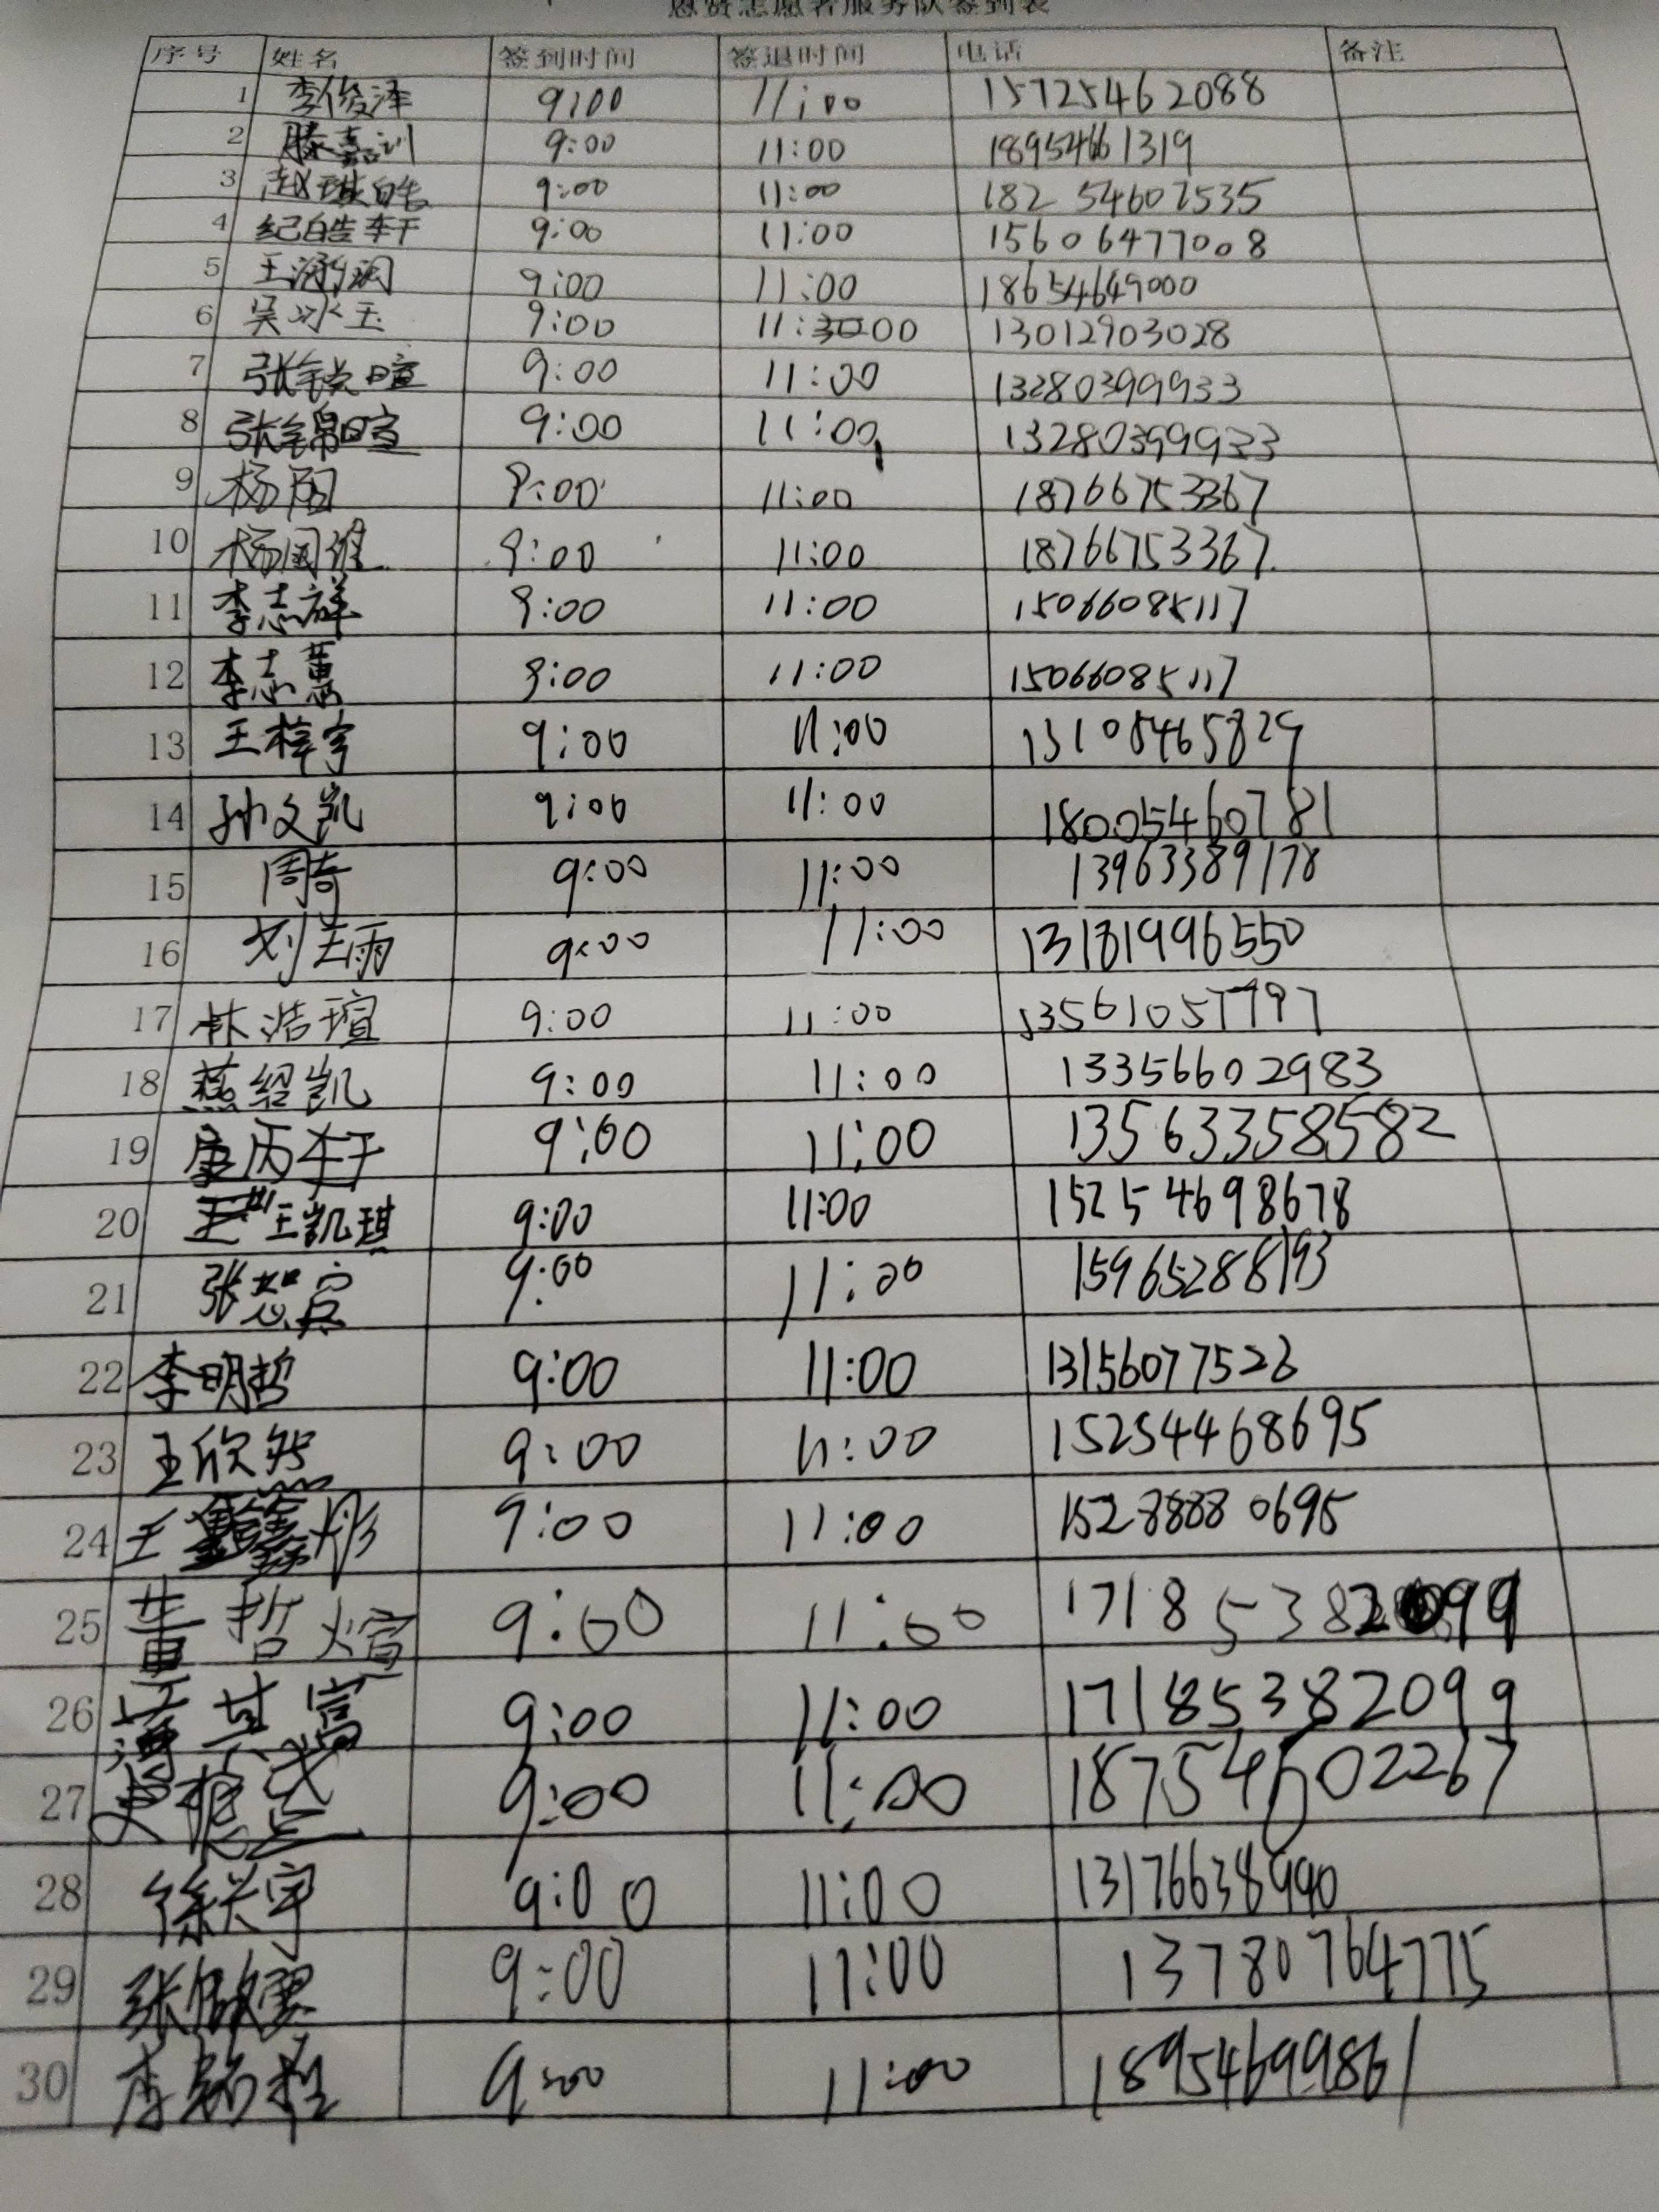 志愿者服务队签到表
序号 姓名 签到时间 签退时间 电话 备注
1 李俊泽 9:00 11:00 15725462088
2 滕嘉训 9:00 11:00 18954661319
3 赵琪皓 9:00 11:00 18254607535
4 纪皓轩 9:00 11:00 15606477008
5 王 9:00 11:00 18654649000
6 吴冰玉 9:00 11:00 13012903028
7 张锐暄 9:00 11:00 13280399933
8 张锦暄 9:00 11:00 13280399933
9 杨阳 9:00 11:00 18766753367
10 杨国维 9:00 11:00 18766753367
11 李志祥 9:00 11:00 15066085117
12 李志慧 9:00 11:00 15066085117
13 王梓宇 9:00 11:00 13105465829
14 孙文凯 9:00 11:00 18005460781
15 周奇 9:00 11:00 13963389178
16 刘雨 9:00 11:00 13181996550
17 林浩瑄 9:00 11:00 13561057797
18 燕绍凯 9:00 11:00 13356602983
19 康丙轩 9:00 11:00 13563358582
20 王凯琪 9:00 11:00 15254698678
21 张恕宾 9:00 11:00 15965288193
22 李明哲 9:00 11:00 13156077526
23 王欣然 9:00 11:00 15254468695
24 王彤 9:00 11:00 15288880695
25 董哲煊 9:00 11:00 17185382099
26 9:00 11:00 17185382099
27 9:00 11:00 18754602267
28 徐兴宇 9:00 11:00 13176638990
29 张 9:00 11:00 13780764775
30 李 9:00 11:00 18954699861